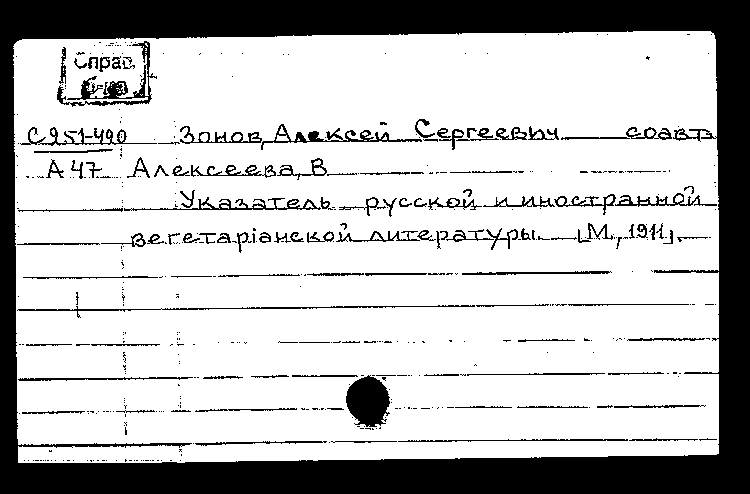 Справ.
б-ка
С251-490 Зонов, Алексей Сергеевич соавт
А47 Алексеева, В
Указатель русской и иностранной
вегетаріанской литературы. [М., 1911].